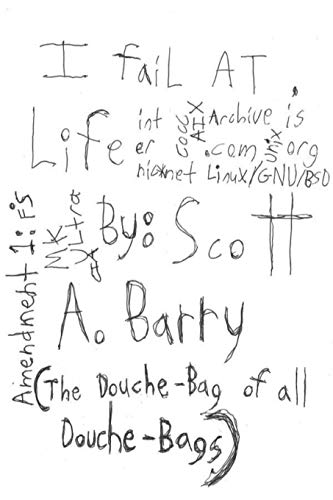 I faiL AT
Life
int
er
nicxnet
God
AIX
Archive.is
.com
Unix
org
Linux/GNU/BSD
Amendment 1: FS
MK
ULtra
By: Scott
A. Barry
(The Douche-Bag of all
Douche-Bags)